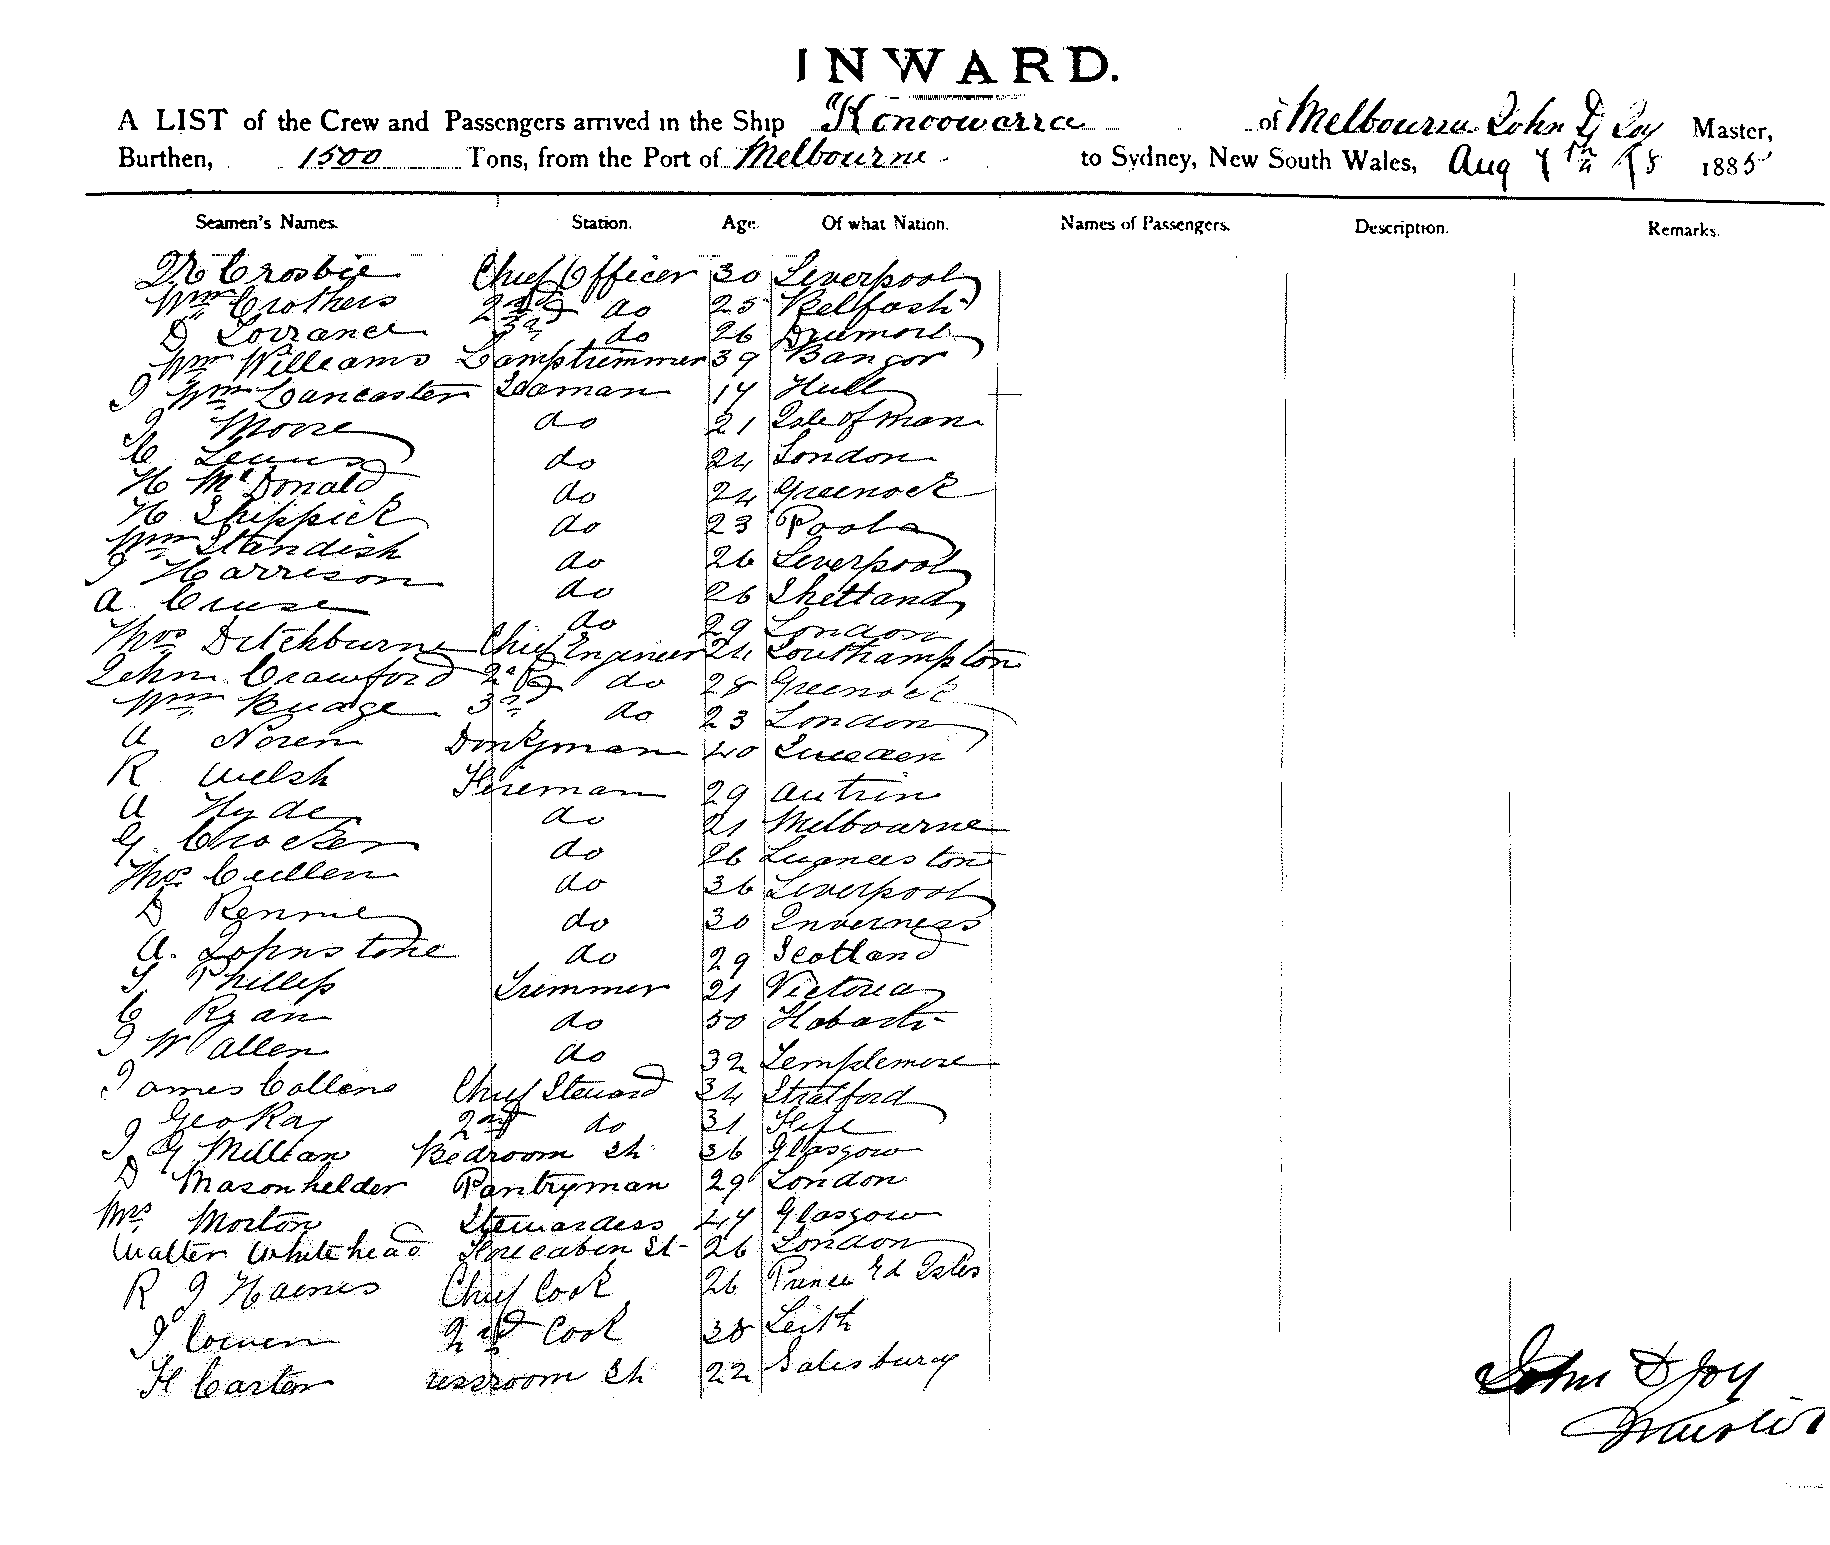 INWARD.
A LIST of the Crew and Passengers arrived in the Ship Konoowarra of Melbourne John D Joy Master,
Burthen, 1500 Tons, from the Port of Melbourne to Sydney, New South Wales, Aug 7th 1885
Seamen's Names. Station. Age. Of what Nation. Names of Passengers. Description. Remarks.
Crosbie Chief Officer 30 Liverpool
Wm Crothers 2nd do 25 Belfast
D Lorrance 3rd do 26 Drumore
Wm Williams Lamptrimmer 39 Bangor
J Wm Lancaster Seaman 17 Hull
J Moore do 21 Isle of Man
C Lewis do 24 London
H McDonald do 24 Greenock
H Shippick do 23 Poole
Wm Standish do 26 Liverpool
J Harrison do 26 Shetland
A Cruse do 29 London
Thos Ditchburne Chief Engineer 24 Southampton
John Crawford 2nd do 28 Greenock
Wm Budge 3rd do 23 London
A Noren Donkyman 40 Sweden
R Welsh Fireman 29 Antrim
A Hyde do 21 Melbourne
G Crocker do 26 Launceston
Thos Cullen do 36 Liverpool
D Rennie do 30 Inverness
A. Johnstone do 29 Scotland
S Phillips Trimmer 21 Victoria
C Ryan do 50 Hobart
J W Allen do 32 Templemore
James Collens Chief Steward 34 Stratford
Geo Ray 2nd do 31 Fife
J G Millian Bedroom St 36 Glasgow
D Masonhelder Pantryman 29 London
Mrs Morton Stewardess 47 Glasgow
Walter Whitehead Forecabin St 26 London
R J Haenes Chief Cook 26 Prince Ed Isles
J Cowen 2nd Cook 38 Leith
H Carten essroom St 22 Salesbury
John D Joy
Master